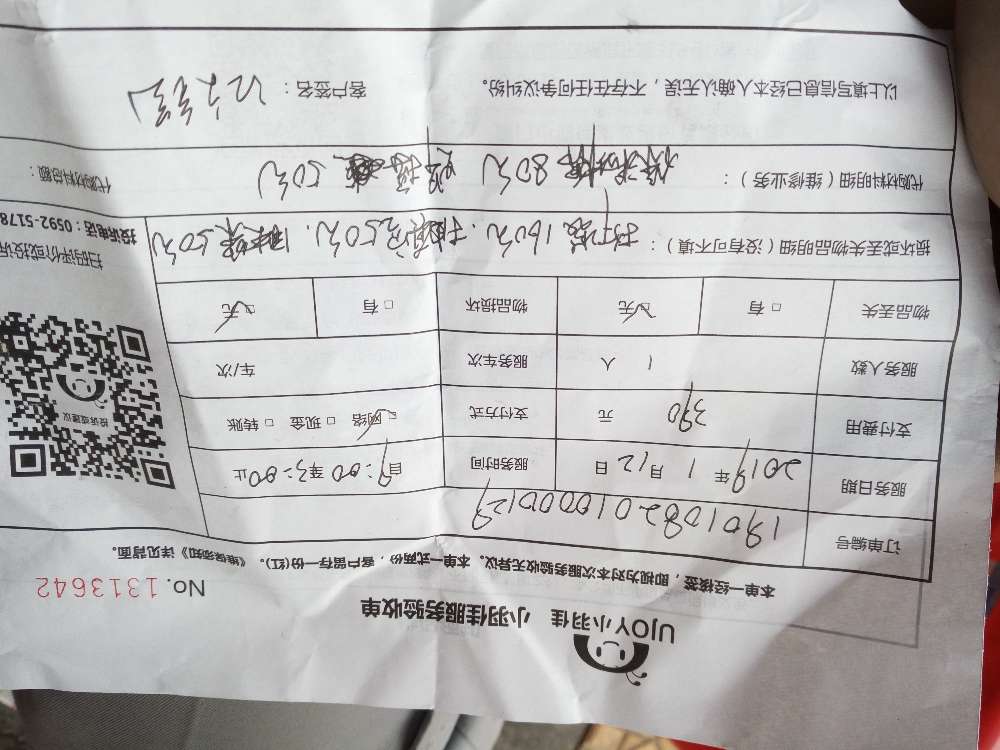 UJOY小羽佳 小羽佳服务验收单
No. 1313642
本单一经接签，即视为对本次服务验收无异议。本单一式两份，客户留存一份(红)。《维保须知》详见背面。
订单编号 19010820100000129
服务日期 2019年 1 月 12 日 服务时间 自9:00至3:00止
支付费用 390 元 支付方式 ☑网络 □ 现金 □ 转账
服务人数 1 人 服务车次 车/次
物品丢失 □ 有 ☑无 物品损坏 □ 有 ☑无
损坏或丢失物品明细（没有可不填）： 160元. 50元. 50元
代购材料明细（维修业务）： 80元 50元
代购材料总额：
以上填写信息已经本人确认无误，不存在任何争议纠纷。 客户签名：
投诉或建议
扫码评价或投诉
投诉电话：0592-5178